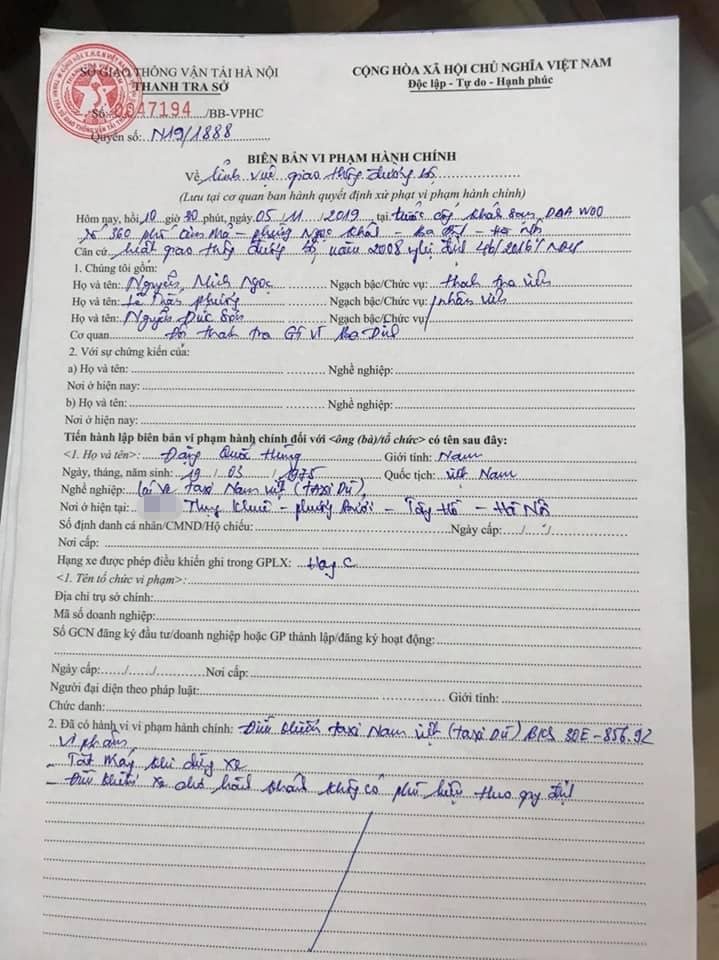 SỞ GIAO THÔNG VẬN TẢI HÀ NỘI
THANH TRA SỞ
CỘNG HÒA XÃ HỘI CHỦ NGHĨA VIỆT NAM
Độc lập - Tự do - Hạnh phúc
Số: 0047194 /BB-VPHC
Quyển số: N19/1888
BIÊN BẢN VI PHẠM HÀNH CHÍNH
Về lĩnh vực giao thông đường bộ
(Lưu tại cơ quan ban hành quyết định xử phạt vi phạm hành chính)
Hôm nay, hồi 10 giờ 30 phút, ngày 05 / 11 / 2019 tại trước cổng khách sạn DAAWOO
Số 360 phố - phường Ngọc Khánh - Ba Đình - Hà Nội
Căn cứ luật giao thông đường bộ, năm 2008 nghị định 46/2016/
1. Chúng tôi gồm:
Họ và tên: Nguyễn Ngọc Ngạch bậc/Chức vụ: thanh tra viên
Họ và tên: Lê Phương Ngạch bậc/Chức vụ: nhân viên
Họ và tên: Nguyễn Đức Ngạch bậc/Chức vụ:
Cơ quan Đội thanh tra GTVT Ba Đình
2. Với sự chứng kiến của:
a) Họ và tên: Nghề nghiệp:
Nơi ở hiện nay:
b) Họ và tên: Nghề nghiệp:
Nơi ở hiện nay:
Tiến hành lập biên bản vi phạm hành chính đối với <ông (bà)/tổ chức> có tên sau đây:
<1. Họ và tên>: Đặng Quốc Hùng Giới tính: Nam
Ngày, tháng, năm sinh: 19 / 03 / 1975 Quốc tịch: Việt Nam
Nghề nghiệp: Lái xe taxi Nam Việt (TAXI DÙ)
Nơi ở hiện tại: Thụy Khuê - phường Bưởi - Tây Hồ - Hà Nội
Số định danh cá nhân/CMND/Hộ chiếu: Ngày cấp: / /
Nơi cấp:
Hạng xe được phép điều khiển ghi trong GPLX: Hạng C
<1. Tên tổ chức vi phạm>:
Địa chỉ trụ sở chính:
Mã số doanh nghiệp:
Số GCN đăng ký đầu tư/doanh nghiệp hoặc GP thành lập/đăng ký hoạt động:
Ngày cấp: / / Nơi cấp:
Người đại diện theo pháp luật: Giới tính:
Chức danh:
2. Đã có hành vi vi phạm hành chính: Điều khiển taxi Nam Việt (taxi Dù) BKS 30E-856.92
Vi phạm
- Tắt máy khi dừng xe
- Điều khiển xe chở hành khách không có phù hiệu theo quy định